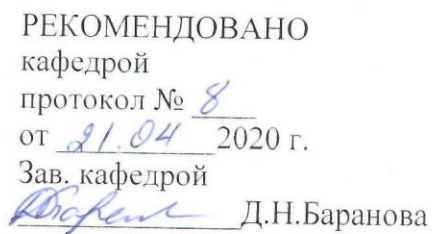 РЕКОМЕНДОВАНО
кафедрой
протокол № 8
от 21.04 2020 г.
Зав. кафедрой
Д.Н.Баранова